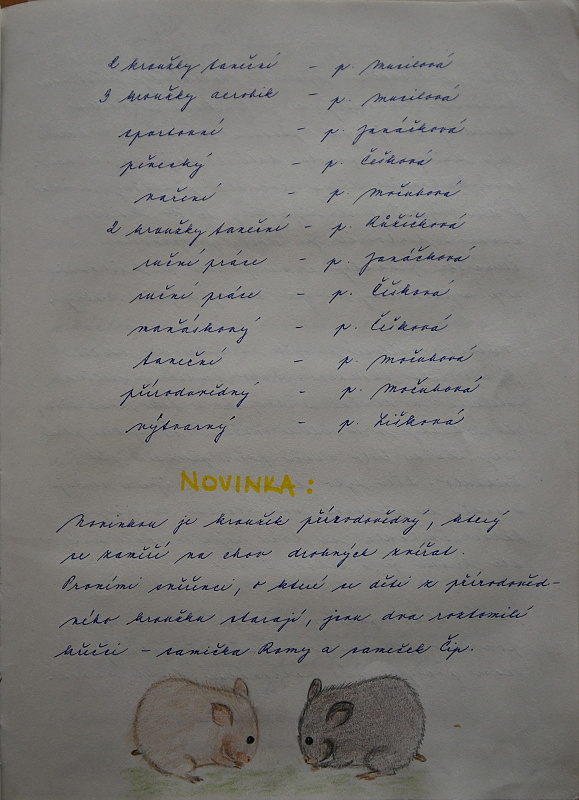 2 kroužky taneční - p. Musilová
3 kroužky aerobik - p. Musilová
sportovní - p. Janáčková
pěnecký - p. Čišková
vaření - p. Močubová
2 kroužky taneční - p. Růžičková
ruční práce - p. Janáčková
ruční práce - p. Čišková
maňáskový - p. Čišková
taneční - p. Močubová
přírodovědný - p. Močubová
výtvarný - p. Lišková
NOVINKA:
Novinkou je kroužek přírodovědný, který
se zaměří na chov drobných zvířat.
Prvními svěřenci, o které se děti z přírodověd-
ného kroužku starají, jsou dva roztomilí
křečci - samička Romy a sameček Čip.